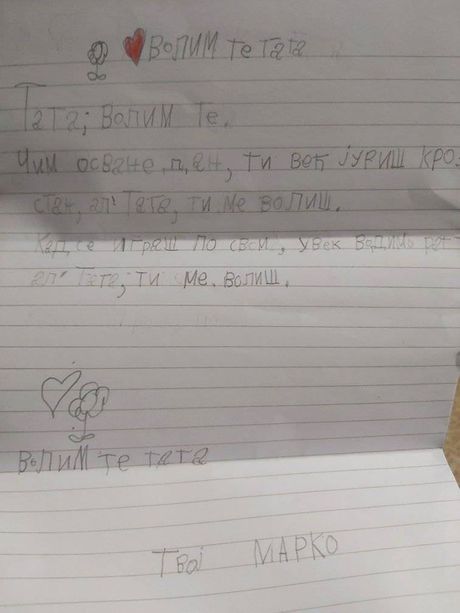 ВОЛИМ ТЕ ТАТА
Тата; ВОЛИМ ТЕ.
Чим осване дан, ти већ јуриш кро.
стан, ал' Тата, ти ме волиш.
Кад се играш по свој, увек водимо рат
ал' Тата; ти ме волиш.
ВОЛИМ ТЕ ТАТА
Твој МАРКО